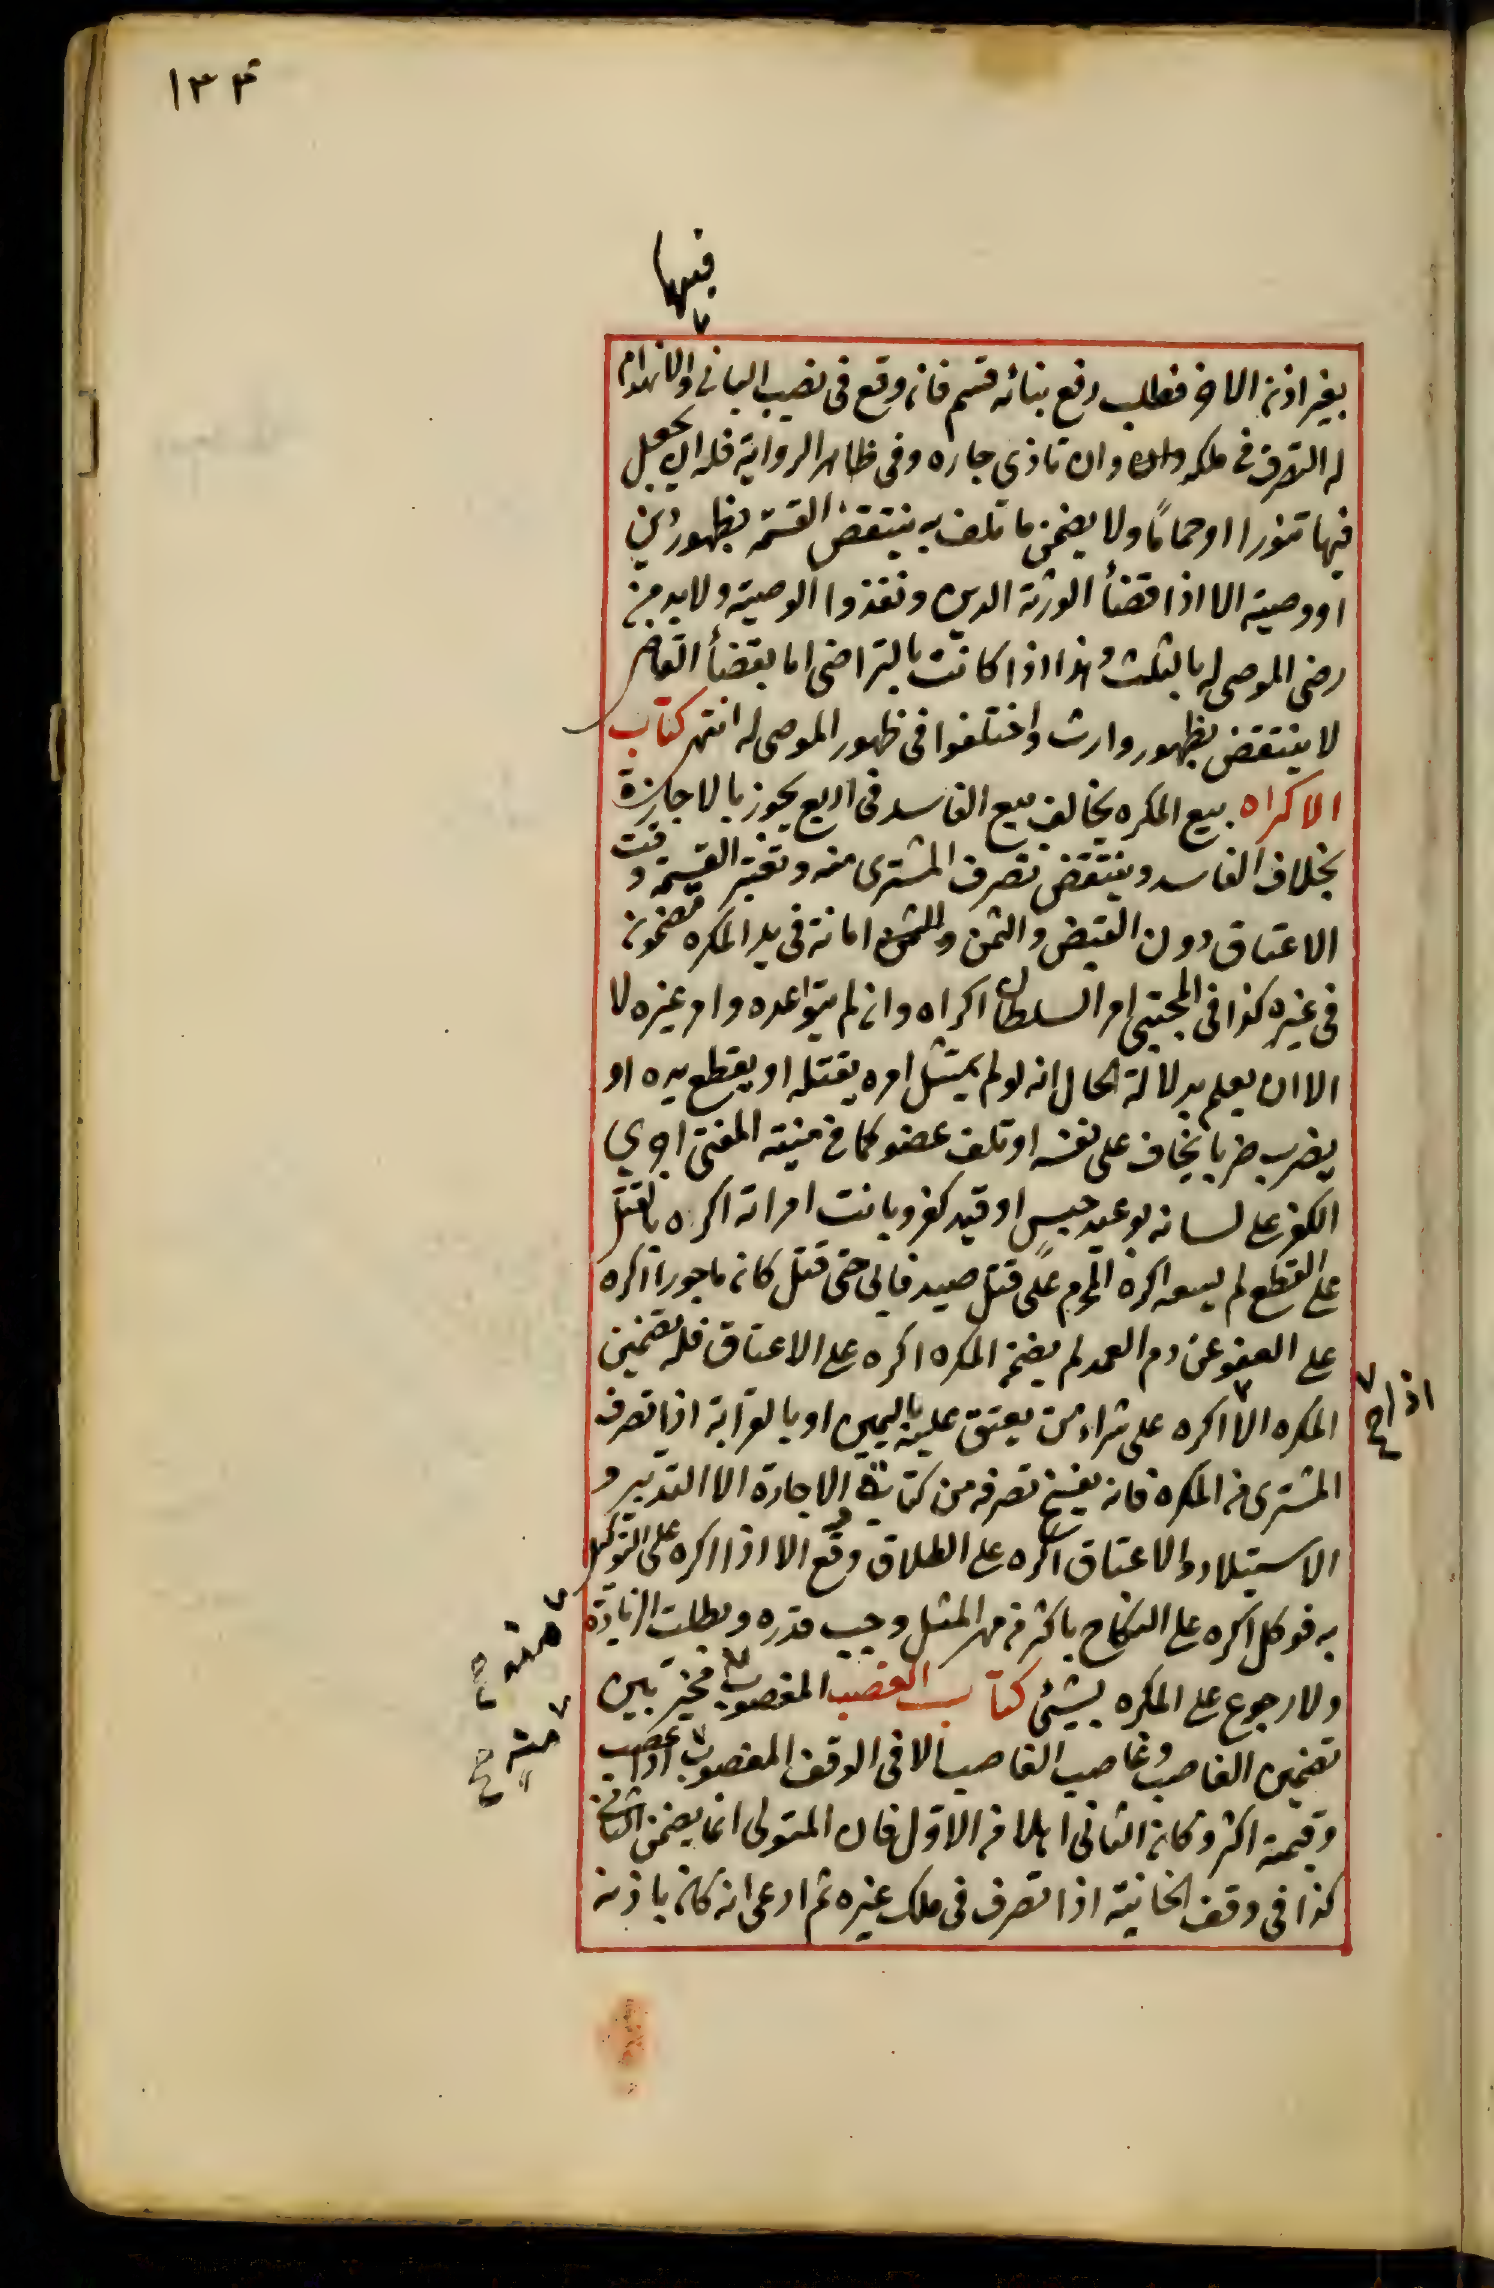 ١٣٤
فيها
بغير اذن الاخر فطلب رفع بنائه قسم فان وقع في نصيب الباني والا هدم
له التصرف في ملكه وان تاذي جاره وفي ظاهر الرواية فله ان يجعل
فيها تنورا او حمامًا ولا يضمن ما تلف به ينتقض القسمة بظهور دين
او وصية الا اذا قضأ الورثة الدين ونفذوا الوصية ولا بد من
رضى الموصى له بالثلث وهذا اذا كانت بالتراضى اما بقضأ القاضى
لا ينتقض بظهور وارث واختلفوا في ظهور الموصى له انتهى كتاب
الاكراه بيع المكره يخالف بيع الفاسد في اربع يجوز بالاجازة
بخلاف الفاسد وينتقض تصرف المشترى منه وتعتبر القيمة وقت
الاعتاق دون القبض والثمن والمثمن امانة في يد المكره مضمون
في غيره كذا في المجتبى امر السلطان اكراه وان لم يتواعده وامر غيره لا
الا ان يعلم بدلالة الحال انه لو لم يمتثل امره يقتله او يقطع يده او
يضرب ضربا يخاف على نفسه او تلف عضو كما في منية المفتى اجرى
الكفر على لسانه بوعيد حبس او قيد كفر وبانت امراته اكره بالقتل
على القطع لم يسعه اكره المحرم على قتل صيد فابى حتى قتل كان ماجورا اكره
على العفو عن دم العمد لم يضمن المكره اكره على الاعتاق فله تضمين
المكره الا اكره على شراء من يعتق عليه باليمين او بالقرابة اذا تصرف
اذا صح
المشترى من المكره فانه يفسخ تصرفه من كتابة والاجارة الا التدبير و
الاستيلاد والاعتاق اكره على الطلاق وقع الا اذا اكره على التوكيل
به فوكل اكره على النكاح باكثر من مهر المثل وجب قدره وبطلت الزيادة
ولا رجوع على المكره بشيئ كتاب الغصب المغصوب منه مخير بين
منه صح
تضمين الغاصب وغاصب الغاصب الا في الوقف المغصوب اذا غصب
وقيمته اكثر وكان الثانى املا من الاول فان المتولى انما يضمن الثانى
كذا في وقف الخانية اذا تصرف في ملك غيره ثم ادعى انه كان باذنه